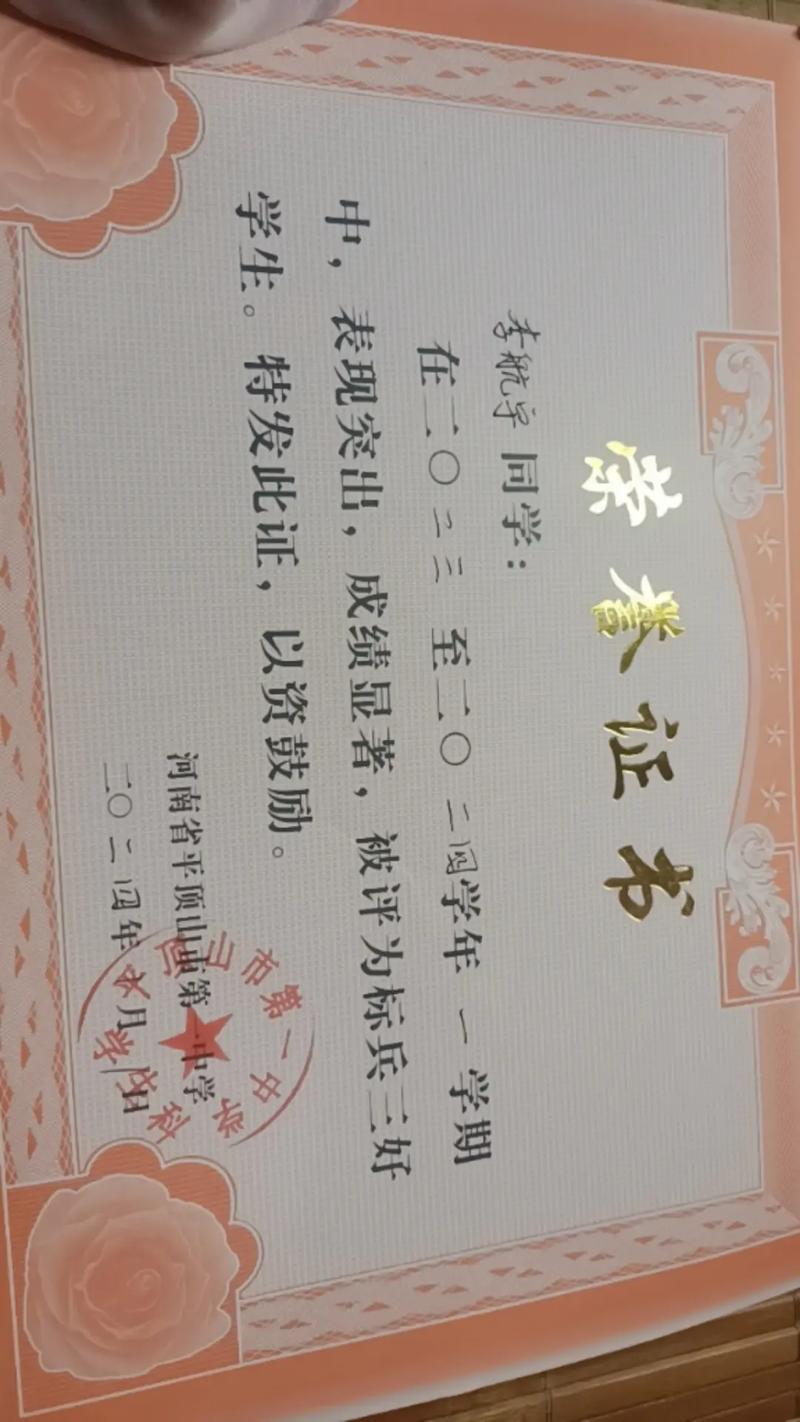 荣誉证书
李航宇同学：
在二〇二三至二〇二四学年一学期
中，表现突出，成绩显著，被评为标兵三好
学生。特发此证，以资鼓励。
河南省平顶山市第一中学
二〇二四年 月 日
市第一中学
学生科